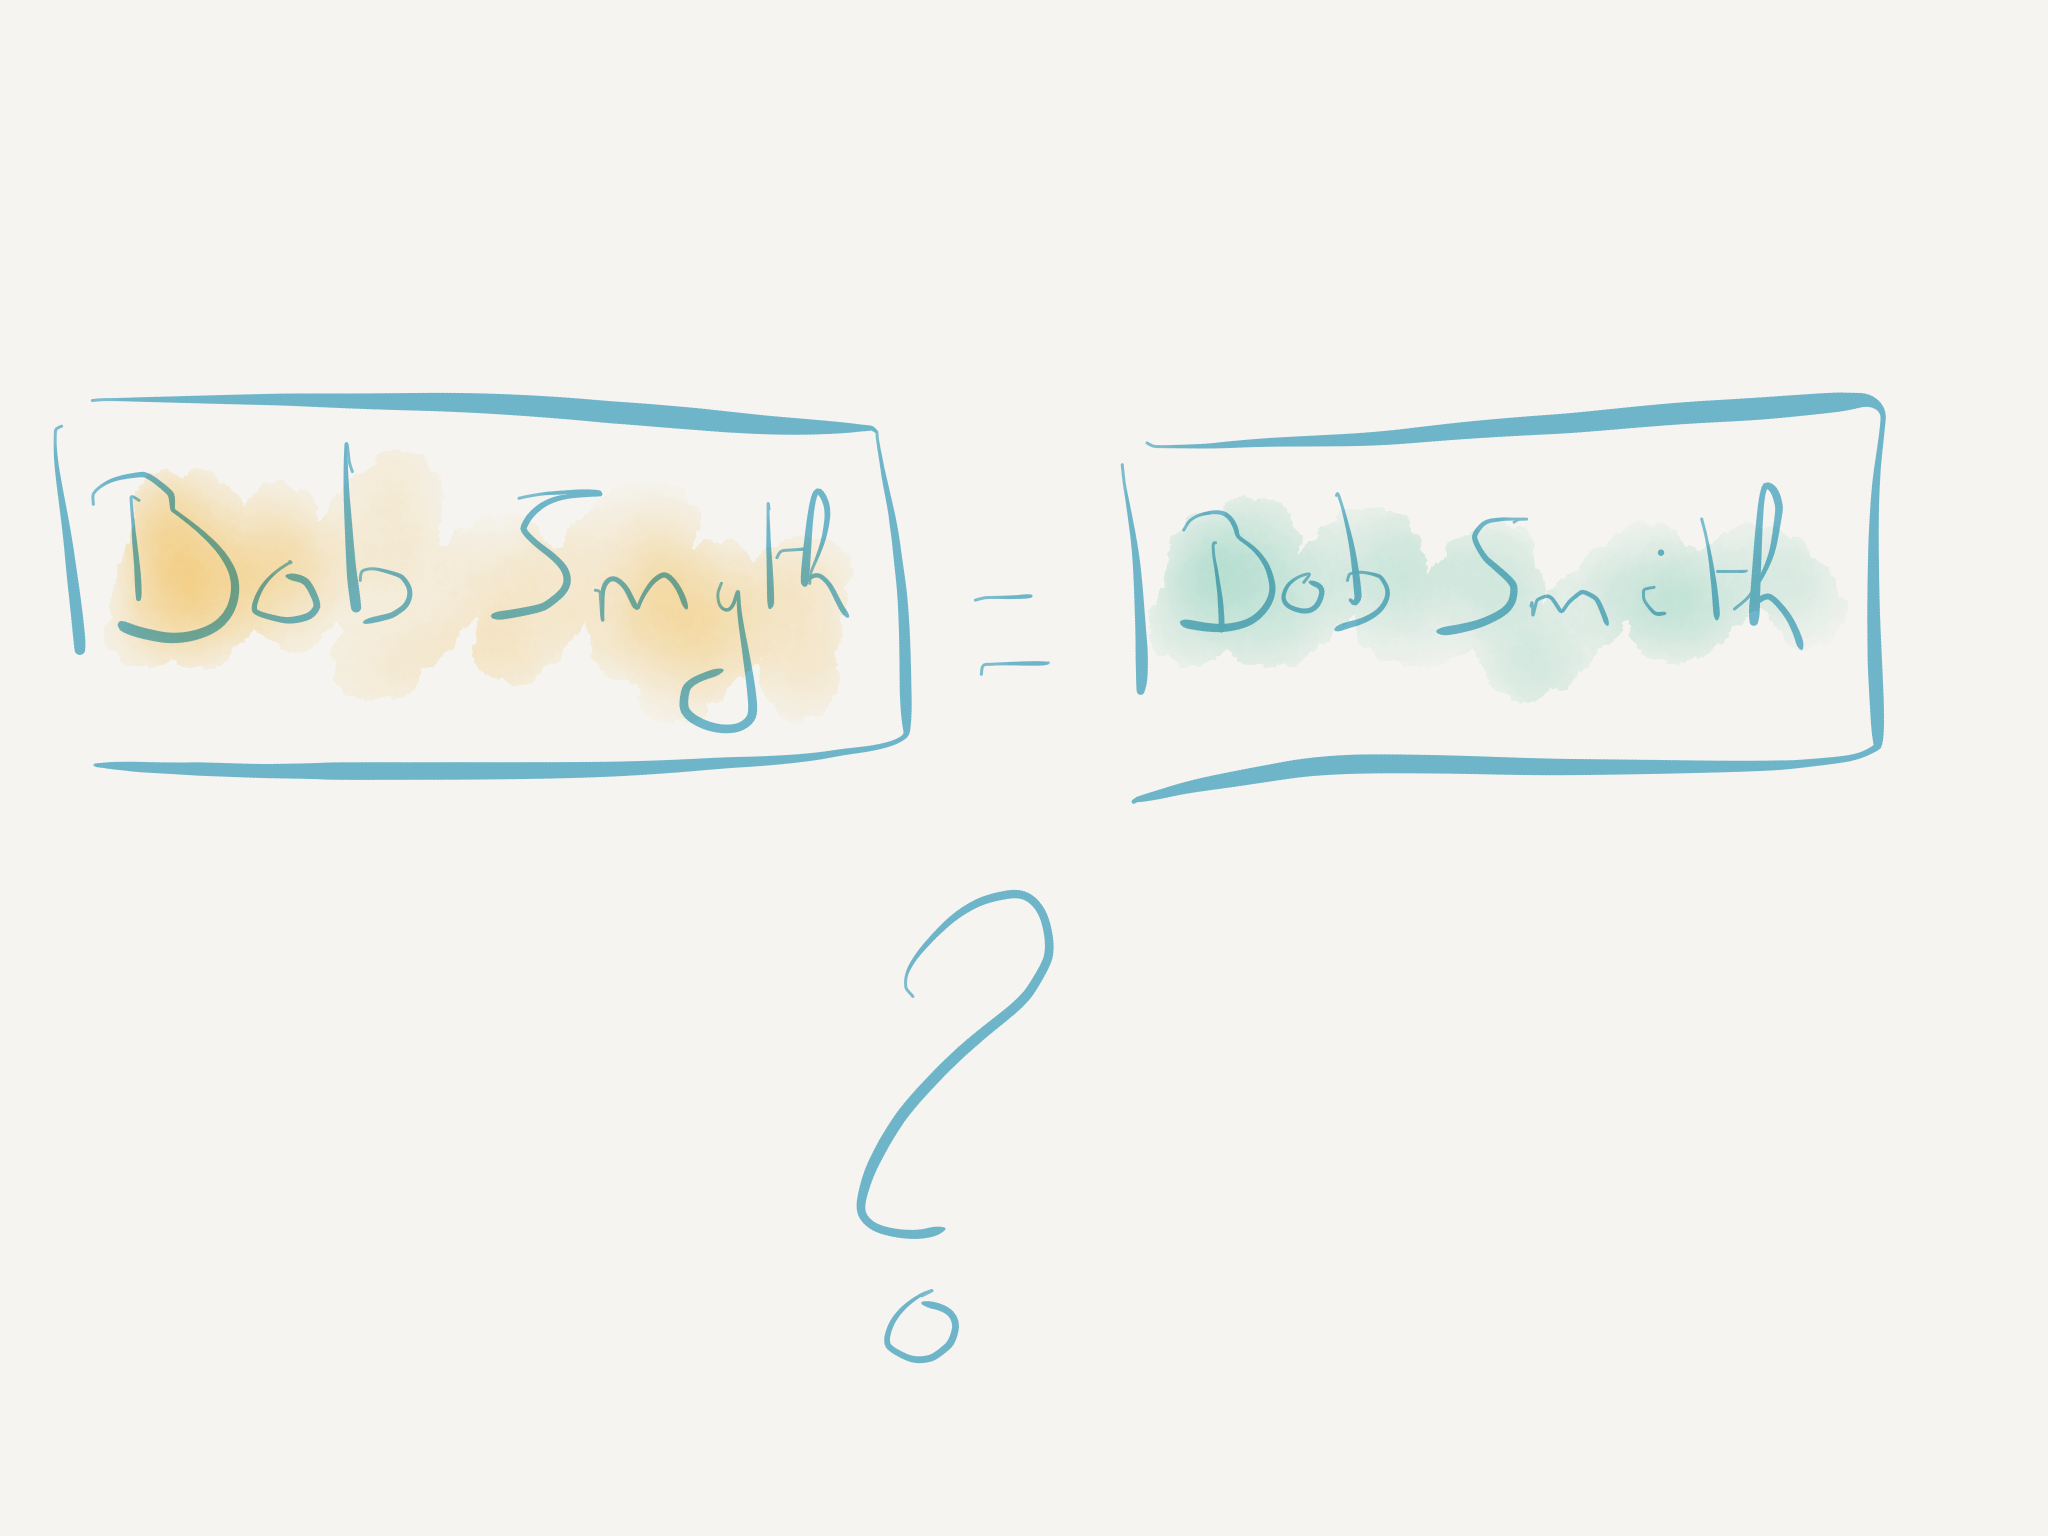 Dob Smyth = Dob Smith
?